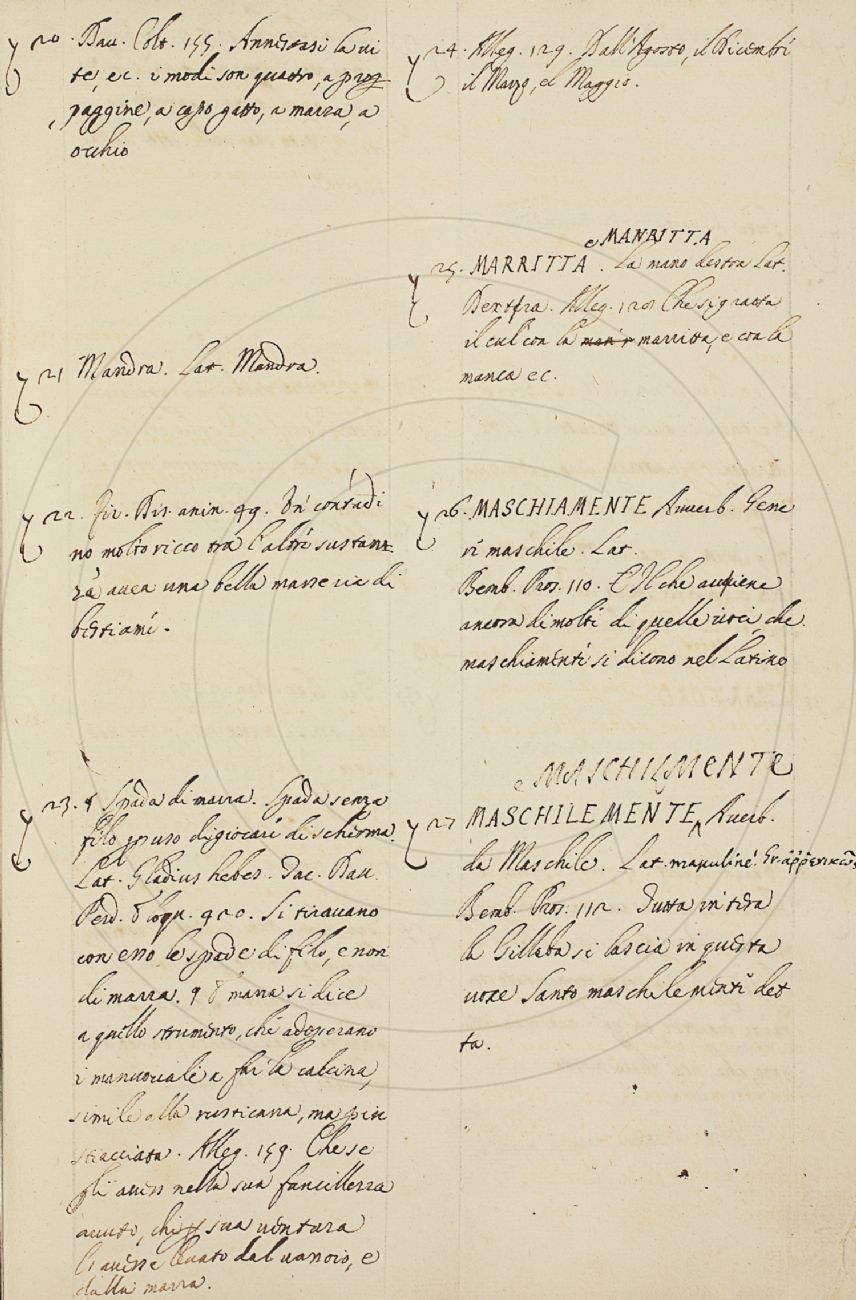 20. Dav. Colt. 155. Annestasi la vi
te, ec. i modi son quattro, a prop
paggine, a capo gatto, a marza, a
occhio
21 Mandra. Lat. Mandra.
22. Fir. Dis. anim. 49. Un contadi
no molto ricco trà l'altre sustan
ze avea una bella masseria di
bestiame.
23. § Spada di marra. Spada senza
filo p uso di giocare di scherma.
Lat. Gladius hebes. Tac. Dav.
Perd. eloqu. 420. Si tiravano
con esso le spade di filo, e non
di marra. § E marra si dice
a quello strumento, che adoperano
i manovali a far la calcina,
simile alla rusticana, ma più
stiacciata. Alleg. 159. Che se
gli avess nella sua fancillezza
avuto, chi p sua ventura
l'avesse levato dal vassoio, e
dalla marra.
24. Alleg. 129. Dall'Agosto, il Dicembre
il Marzo, el Maggio.
e MANRITTA
25. MARRITTA. La mano destra Lat.
Dextera. Alleg. 120. Che si gratta
il cul con la marritta, e con la
manca ec.
26. MASCHIAMENTE Avverb. Gene
re maschile. Lat.
Bemb. Pros. 110. Il che avviene
ancora di molti di quelle voci che
maschiamente si dicono nel Latino
e MASCHILMENTE
27 MASCHILEMENTE Averb.
da Maschile. Lat. masculine. Gr. ἀῤῥενικῶς
Bemb. Pros. 112. Tutta intera
la Sillaba si lascia in questa
voce Santo maschilemente det
ta.